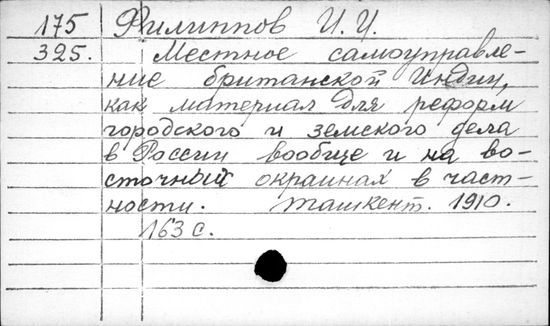 175 Филиппов И. И.
325. Местное самоуправле-
ние британской Индии,
как материал для реформ
городского и земского дела
в России вообще и на во-
сточный окраинах в част-
ности. Ташкент. 1910.
163 с.